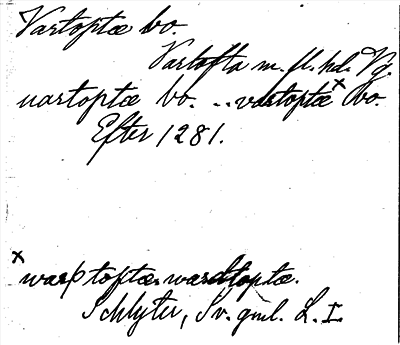 Vartoptæ bo.
Vartofta m. fl. hd. Vg.
uartoptæ bo. .. vartoptæ x bo.
Efter 1281.
x warp toptæ. wardtoptæ.
Schlyter, Sv. gml. L. I.